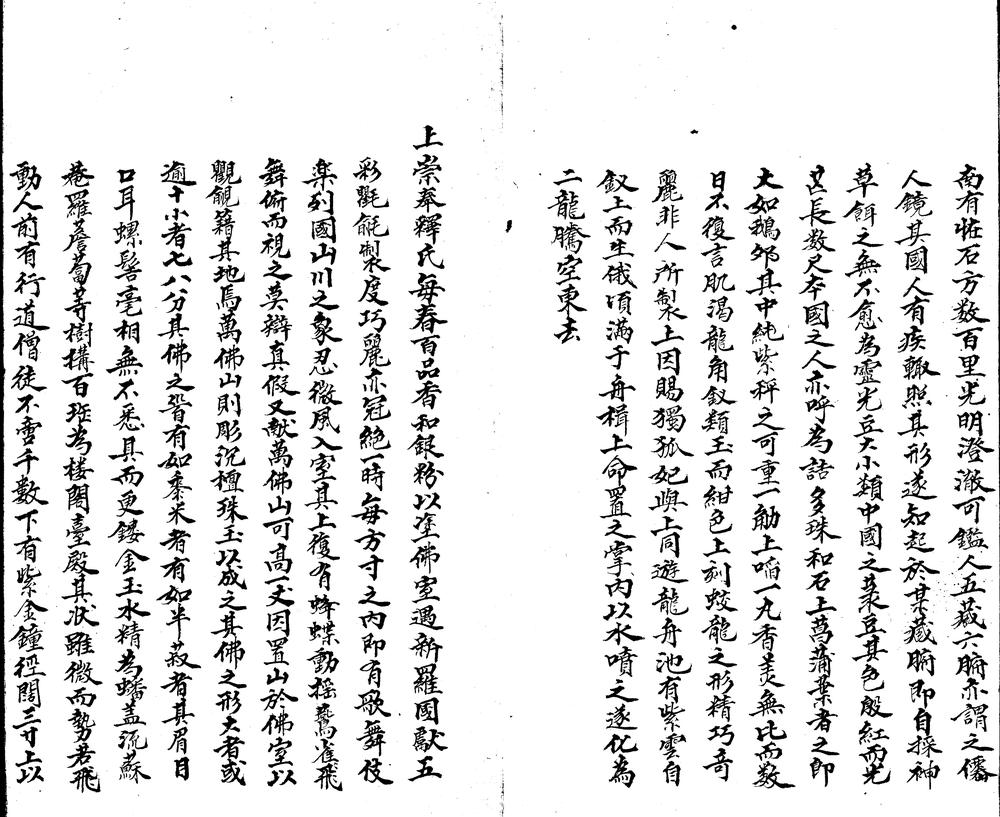 南有恠石方数百里光明澄澈可鑑人五藏六腑亦謂之僊
人鏡其國人有疾輙照其形遂知起於某藏腑即自採神
草餌之無不愈為靈光豆大小類中國之菉豆其色殷紅而光
芒長数尺夲國之人亦呼為詰多珠和石上菖蒲葉煮之即
大如鵝夘其中純紫秤之可重一觔上啗一丸香美無比而数
日不復言肌渴龍角釵類玉而紺色上刻蛟龍之形精巧奇
麗非人所製上因賜獨狐妃與上同遊龍舟池有紫雲自
釵上而生俄頃滿于舟楫上命置之掌内以水噴之遂化為
二龍騰空東去
上崇奉釋氏每春百品香和銀粉以塗佛室遇新羅國獻五
彩氍毹製度巧麗亦冠絕一時每方寸之内即有歌舞伎
楽列國山川之象忽微風入室其上復有蜂蝶動摇鷰雀飛
舞俯而視之莫辯真假又献萬佛山可高一丈因置山於佛室以
氍毹籍其地焉萬佛山則彫沉檀珠玉以成之其佛之形大者或
逾十小者七八分其佛之首有如黍米者有如半菽者其眉目
口耳螺髻毫相無不悉具而更鏤金玉水精為蟠盖流蘇
菴羅薝蔔等樹搆百珤為楼閣臺殿其状雖微而勢若飛
動人前有行道僧徒不啻千數下有紫金鐘徑闊三寸上以